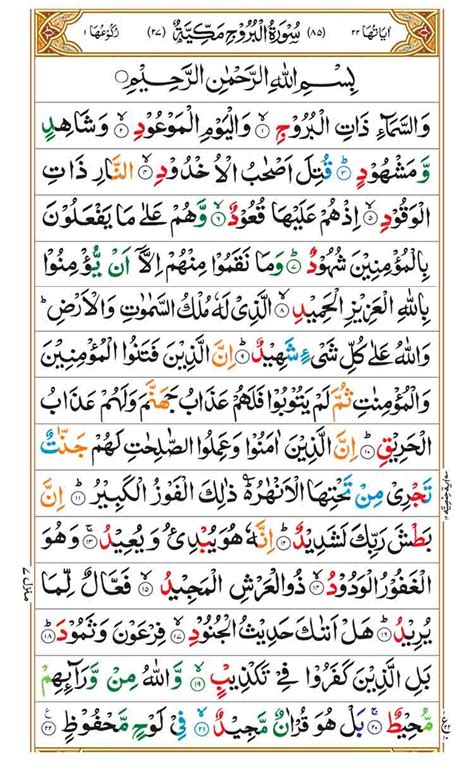 اٰيَاتُهَا ٢٢ (٨٥) سُوْرَةُ الْبُرُوْجِ مَكِّيَّةٌ (٢٧) رُكُوْعُهَا ١
بِسْمِ اللّٰهِ الرَّحْمٰنِ الرَّحِيْمِ
وَالسَّمَآءِ ذَاتِ الْبُرُوْجِ ۙ﴿١﴾ وَالْيَوْمِ الْمَوْعُوْدِ ۙ﴿٢﴾ وَشَاهِدٍ
وَّمَشْهُوْدٍ ؕ﴿٣﴾ قُتِلَ اَصْحٰبُ الْاُخْدُوْدِ ۙ﴿٤﴾ النَّارِ ذَاتِ
الْوَقُوْدِ ۙ﴿٥﴾ اِذْهُمْ عَلَيْهَا قُعُوْدٌ ۙ﴿٦﴾ وَّهُمْ عَلٰى مَا يَفْعَلُوْنَ
بِالْمُؤْمِنِيْنَ شُهُوْدٌ ؕ﴿٧﴾ وَمَا نَقَمُوْا مِنْهُمْ اِلَّاۤ اَنْ يُّؤْمِنُوْا
بِاللّٰهِ الْعَزِيْزِ الْحَمِيْدِ ۙ﴿٨﴾ الَّذِيْ لَهٗ مُلْكُ السَّمٰوٰتِ وَالْاَرْضِ ؕ
وَاللّٰهُ عَلٰى كُلِّ شَيْءٍ شَهِيْدٌ ؕ﴿٩﴾ اِنَّ الَّذِيْنَ فَتَنُوا الْمُؤْمِنِيْنَ
وَالْمُؤْمِنٰتِ ثُمَّ لَمْ يَتُوْبُوْا فَلَهُمْ عَذَابُ جَهَنَّمَ وَلَهُمْ عَذَابُ
الْحَرِيْقِ ؕ﴿١٠﴾ اِنَّ الَّذِيْنَ اٰمَنُوْا وَعَمِلُوا الصّٰلِحٰتِ لَهُمْ جَنّٰتٌ
تَجْرِيْ مِنْ تَحْتِهَا الْاَنْهٰرُ ؕ ذٰلِكَ الْفَوْزُ الْكَبِيْرُ ؕ﴿١١﴾ اِنَّ
بَطْشَ رَبِّكَ لَشَدِيْدٌ ؕ﴿١٢﴾ اِنَّهٗ هُوَ يُبْدِئُ وَ يُعِيْدُ ۚ﴿١٣﴾ وَهُوَ
الْغَفُوْرُ الْوَدُوْدُ ۙ﴿١٤﴾ ذُو الْعَرْشِ الْمَجِيْدُ ۙ﴿١٥﴾ فَعَّالٌ لِّمَا
يُرِيْدُ ؕ﴿١٦﴾ هَلْ اَتٰىكَ حَدِيْثُ الْجُنُوْدِ ۙ﴿١٧﴾ فِرْعَوْنَ وَثَمُوْدَ ؕ﴿١٨﴾
بَلِ الَّذِيْنَ كَفَرُوْا فِيْ تَكْذِيْبٍ ۙ﴿١٩﴾ وَّاللّٰهُ مِنْ وَّرَآئِهِمْ
مُّحِيْطٌ ۚ﴿٢٠﴾ بَلْ هُوَ قُرْاٰنٌ مَّجِيْدٌ ۙ﴿٢١﴾ فِيْ لَوْحٍ مَّحْفُوْظٍ ﴿٢٢﴾ ع
منزل ٧